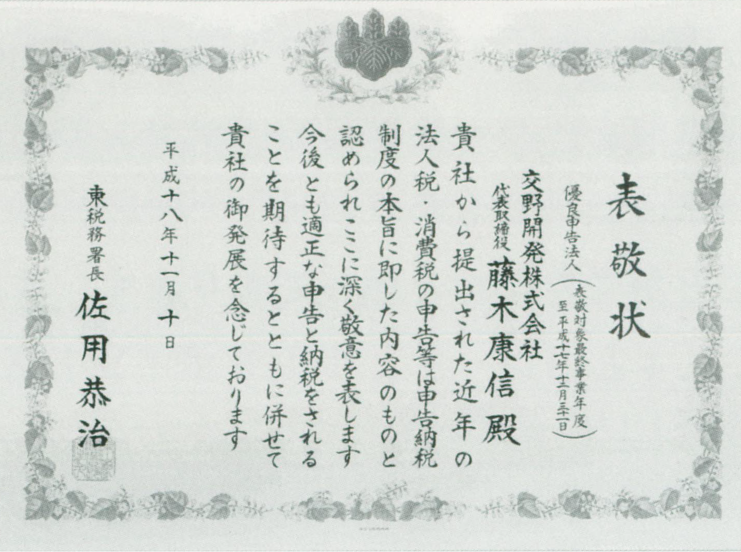 表敬状
優良申告法人（表敬対象最終事業年度
至平成十七年十二月三十一日）
交野開発株式会社
代表取締役 藤木康信殿
貴社から提出された近年の
法人税・消費税の申告等は申告納税
制度の本旨に即した内容のものと
認められここに深く敬意を表します
今後とも適正な申告と納税をされる
ことを期待するとともに併せて
貴社の御発展を念じております
平成十八年十一月十日
東税務署長 佐用恭治